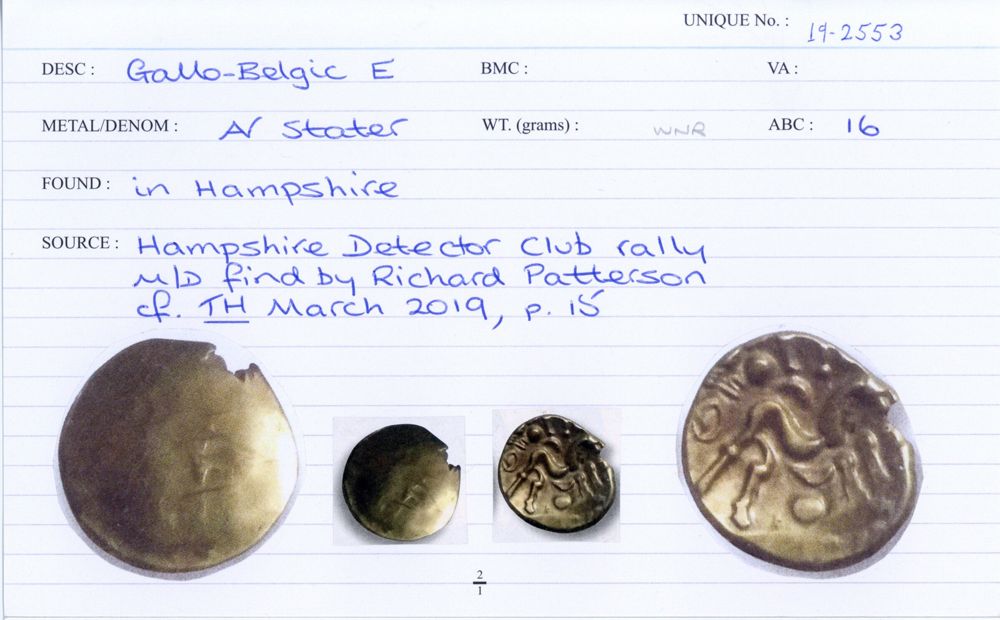 UNIQUE No. : 19-2553
DESC : Gallo-Belgic E BMC : VA :
METAL/DENOM : AV Stater WT. (grams) : WNR ABC : 16
FOUND : in Hampshire
SOURCE : Hampshire Detector Club rally
M/D find by Richard Patterson
cf. TH March 2019, p. 15
2
1